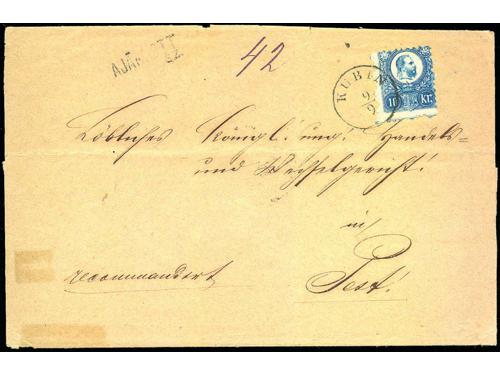 42
KUBIN
9/9
10 Kr.
Löbliches Königl: ung. Handels=
und Wechselgericht!
in
recommandirt
Pest!